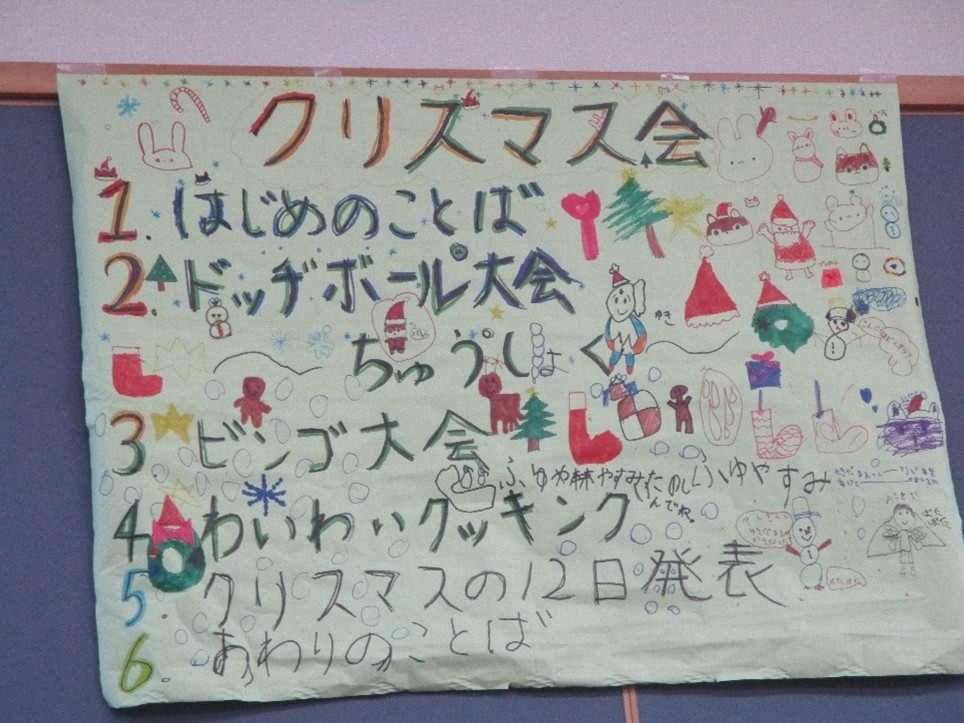 クリスマス会
1. はじめのことば
2. ドッヂボール大会
ちゅうしょく
ゆき
3 ビンゴ大会
ふゆや休みやすみたのしんでね。
ふゆやすみ
4 わいわいクッキング
5. クリスマスの12日発表
6. おわりのことば